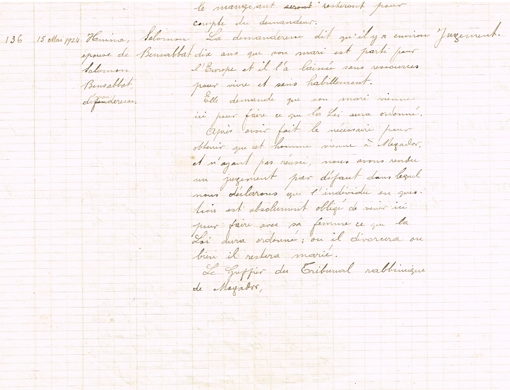 le manquant seront resteront pour
compte du demandeur.
136 15 Mai 1924. Hanina, Salomon La demanderesse dit qu'il y a environ Jugement.
épouse de Bensabbat dix ans que son mari est parti pour
Salomon l'Europe et il l'a laissée sans ressources
Bensabbat, pour vivre et sans habillement.
défenderesse. Elle demande que son mari vienne
ici pour faire ce que la Loi aura ordonné.
Après avoir fait le nécessaire pour
obtenir que cet homme vienne à Mogador,
et n'ayant pas réussi, nous avons rendu
un jugement par défaut dans lequel
nous déclarons que l'individu en ques-
tion est absolument obligé de venir ici
pour faire avec sa femme ce que la
Loi aura ordonné; ou il divorcera ou
bien il restera marié.
Le Greffier du Tribunal rabbinique
de Mogador,